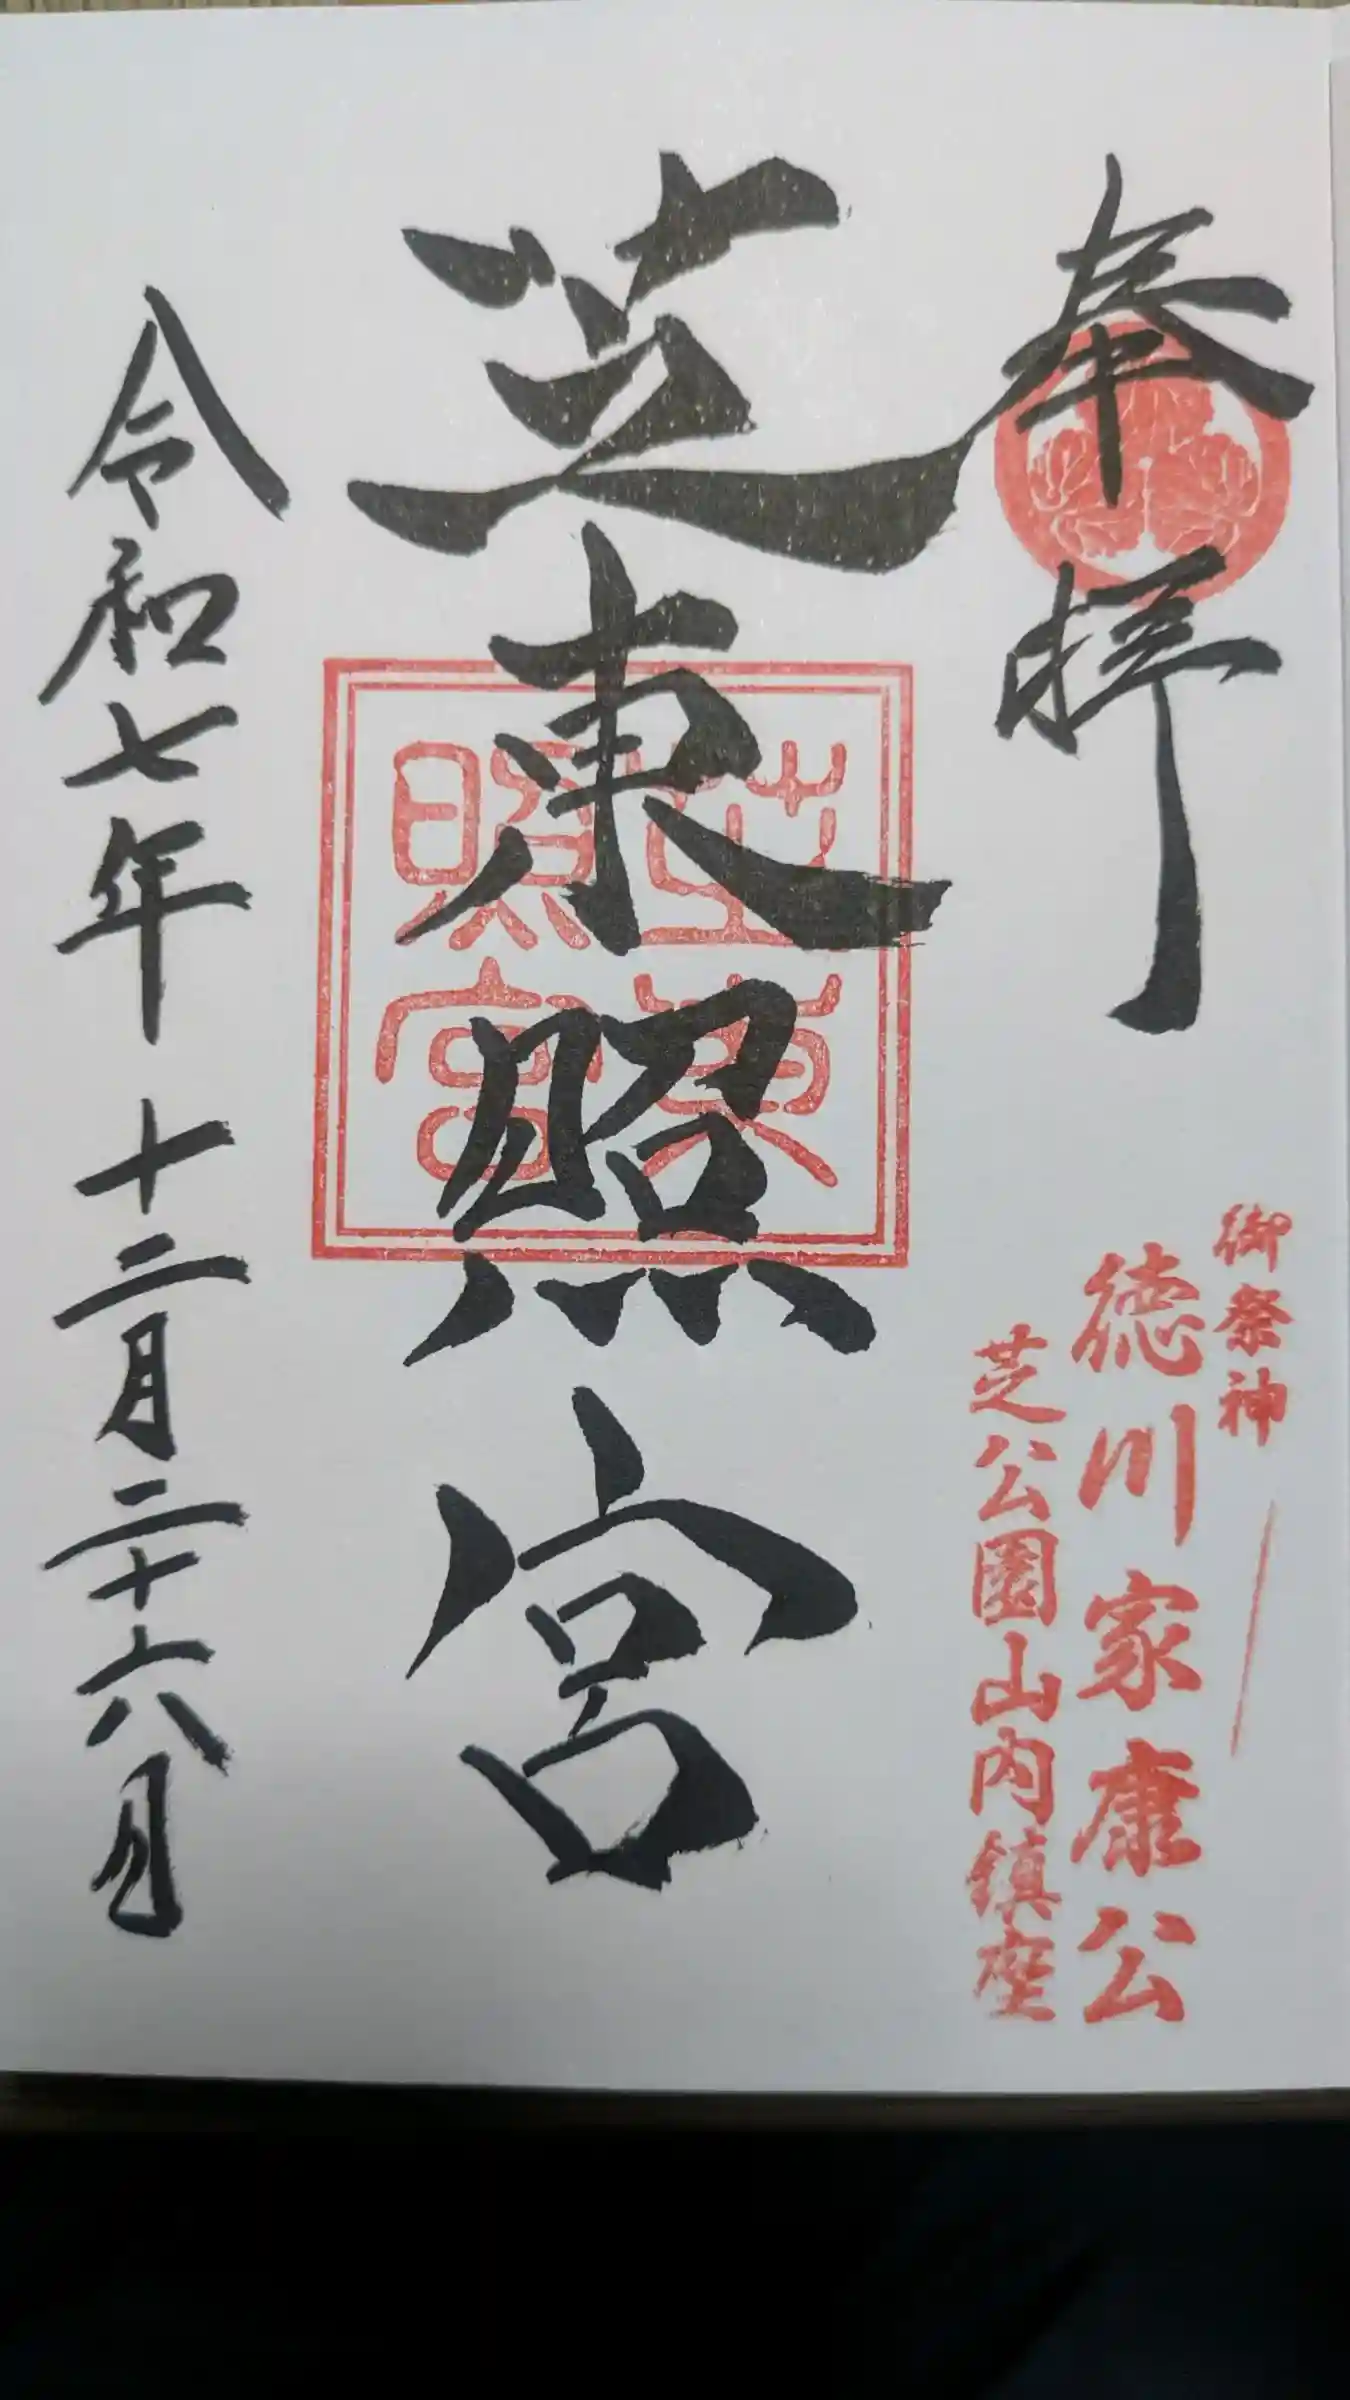 奉拝
御祭神
徳川家康公
芝公園山内鎮座
芝東照宮
芝東
照宮
令和七年十二月二十六日